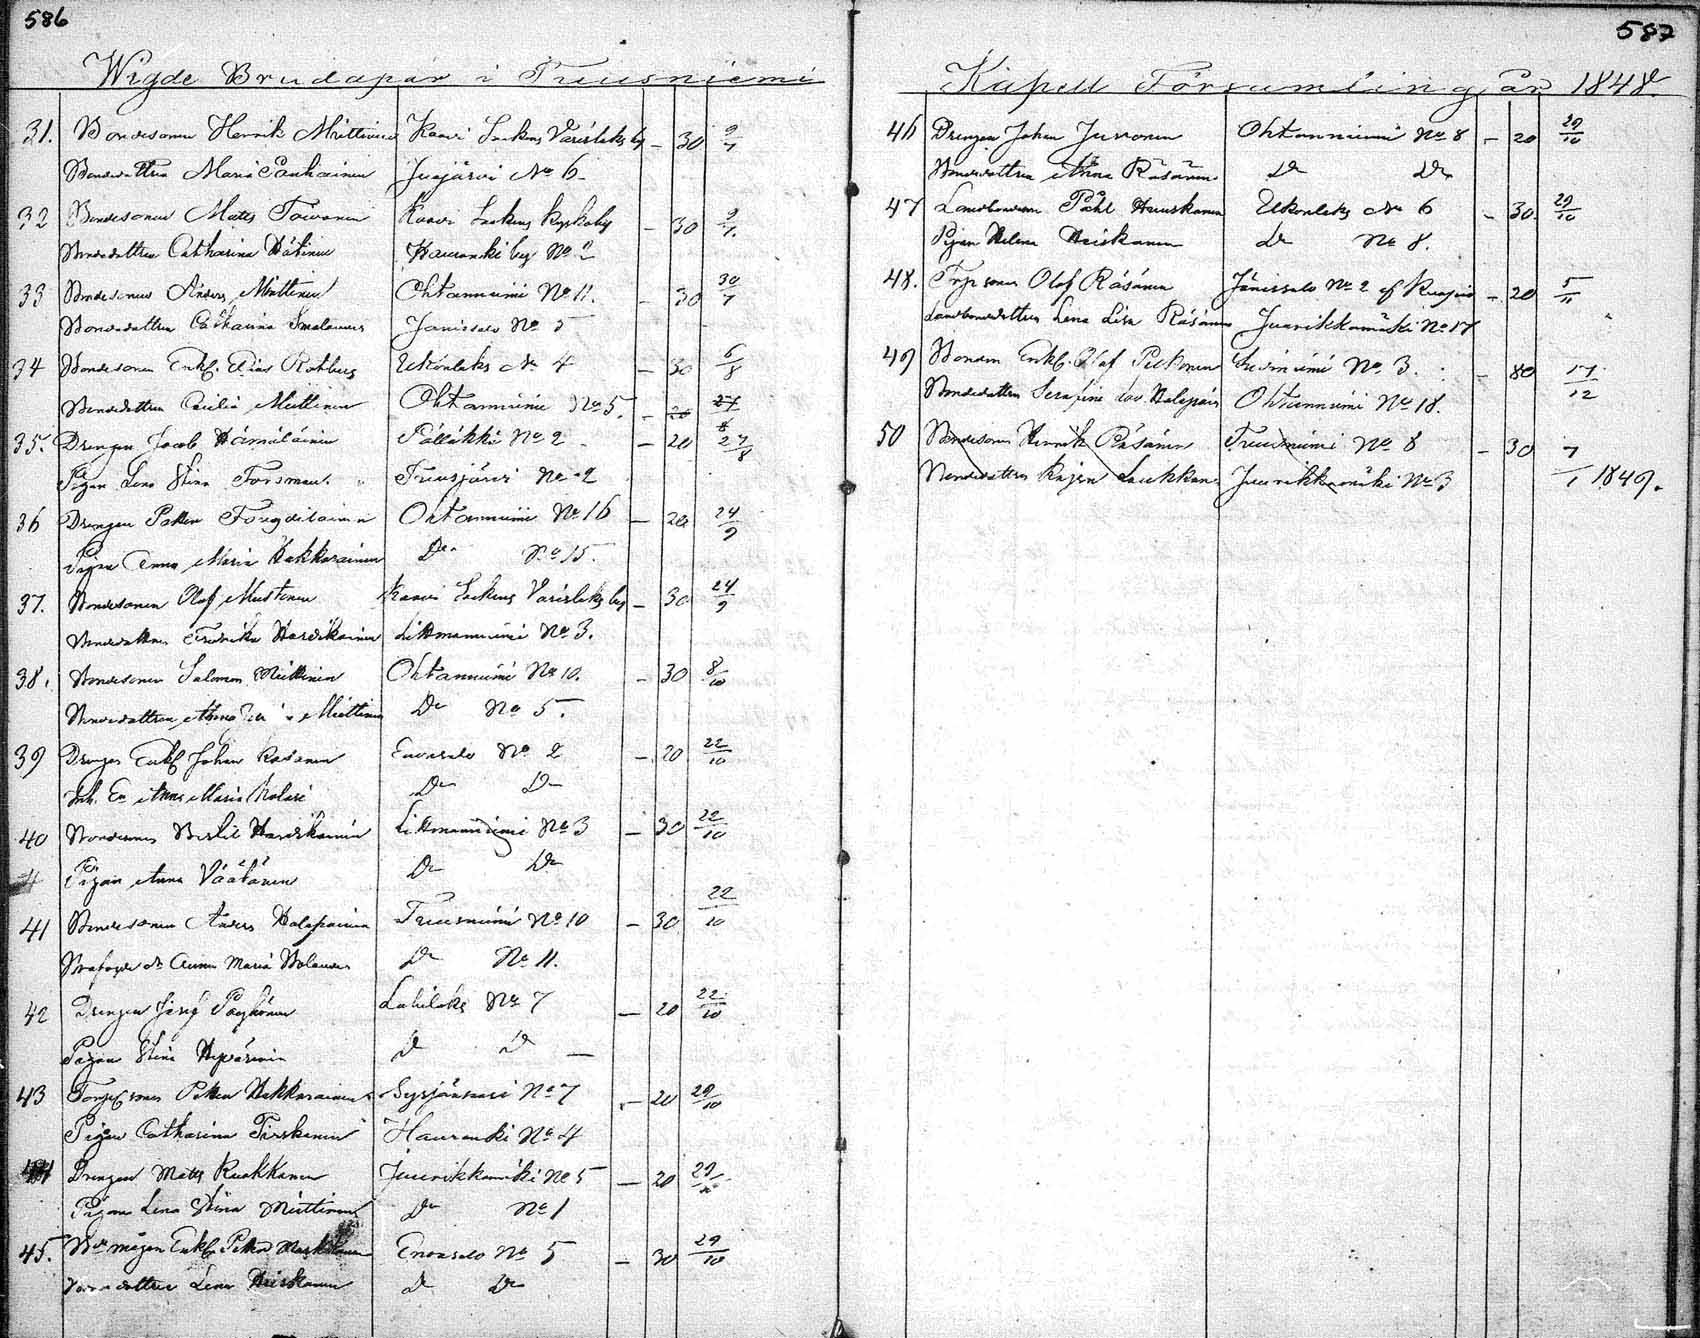 586
Wigde Brudapar i Tuusniemi
31. Bondesonen Henrik Miettinen Kaavi Sockens Varislaks by – 30 9/7
Bondedottren Maria Pauhainen Juojärvi No 6
32 Bondesonen Matts Toivanen Kaavi Sockens Kyrkoby – 30 9/7
Bondedottren Catharina Hätinen Hauranki by No 2
33 Bondesonen Anders Miettinen Ohtanniemi No 11. – 30 30/7
Bondedottren Catharina Smolander Janissalo No 5
34 Bondesonen Enkl. Elias Rotberg Ukonlaks No 4 – 30 6/8
Bondedottren Cecilia Miettinen Ohtanniemi No 5. – 20 27/8
35. Drengen Jacob Hämäläinen Pällikki No 2 – 20 27/8
Pigan Lena Stina Forsman Tuusjärvi No 2
36 Drengen Petter Ohtanniemi No 16 – 20 24/9
Pigan Anna Maria Hakkarainen Do No 15.
37. Bondesonen Olof Mustonen Kaavi Sockens Varislaks by – 30 24/9
Bondedottren Fredrika Hardikainen Littmanniemi No 3.
38. Bondesonen Salomon Miettinen Ohtanniemi No 10. – 30 8/10
Bondedottren Anna Miettinen Do No 5.
39 Drengen Enkl. Johan Räsänen Enonsalo No 2 – 20 22/10
Inh. En Anna Maria Kolari Do Do
40 Bondesonen Bertil Hardikainen Littmanniemi No 3 – 30 22/10
4 Pigan Anna Väätänen Do Do
41 Bondesonen Anders Holopainen Tuusniemi No 10 – 30 22/10
Anna Maria Molander Do No 11.
42 Drengen Josef Pöyhönen Lahilaks No 7 – 20 22/10
Pigan Stina Hyvärinen D D –
43 Torpf. sonen Petter Hakkarainen Syrjänsaari No 7 – 20 29/10
Pigan Catharina Pirskanen Hauranki No 4
44 Drengen Matts Ruokkanen Juurikkamäki No 5 – 20 29/10
Pigan Lena Stina Miettinen Do No 1
45. Enkl. Petter Enonsalo No 5 – 30 29/10
Bondedottren Lena Heiskanen D Do
587
Kapell Församling år 1848.
46 Drengen Johan Juvonen Ohtanniemi No 8 – 20 29/10
Bondedottren Anna Räsänen Do Do
47 Landbonden Påhl Heiskanen Ukonlaks No 6 – 30. 29/10
Pigan Helena Heiskanen Do No 8.
48. Torp sonen Olof Räsänen Jänissalo No 2 af Kuopio – 20 5/11
Landbondedottren Lena Lisa Räsänen Juurikkamäki No 17
49 Bonden Enkl. Olof Pekonen No 3. – 80 17/12
Bondedottren Serafina Lov. Holopain Ohtanniemi No 18.
50 Bondesonen Henrik Räsänen Tuusniemi No 8 – 30 7
Bondedottren Kajsa Laukkan Juurikkamäki No 3 /1 1849.